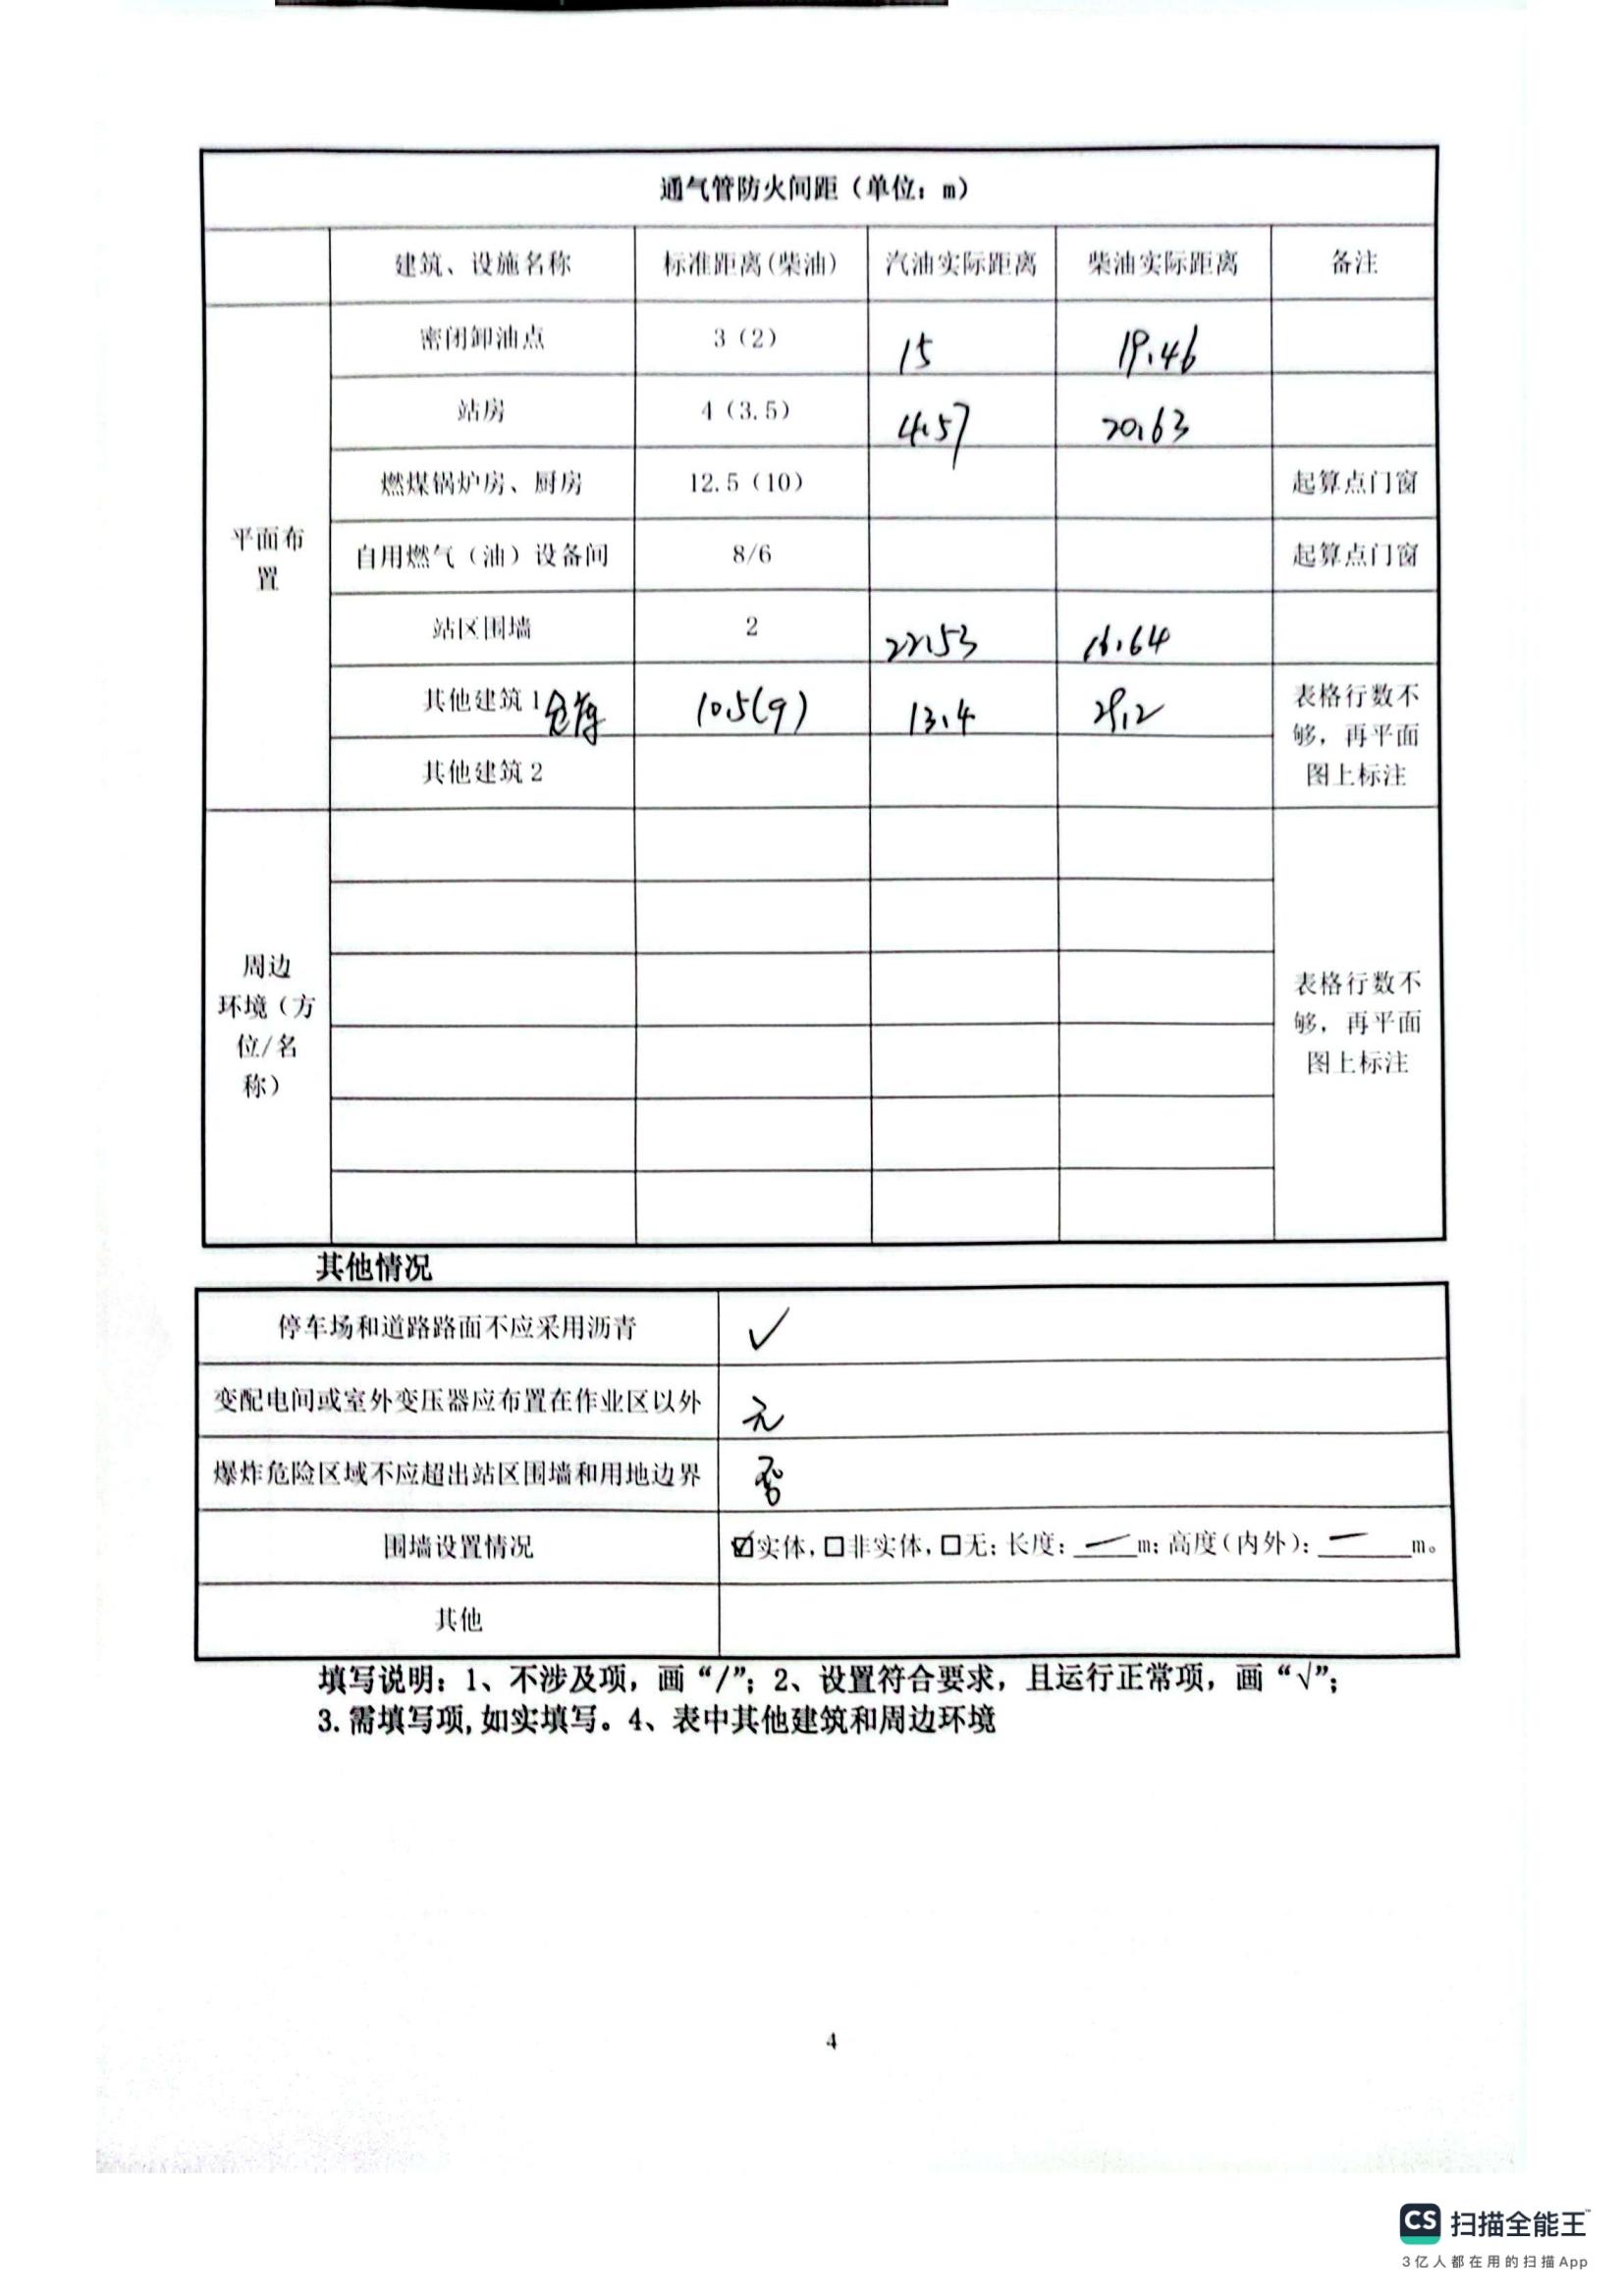 通气管防火间距（单位：m）
建筑、设施名称 标准距离(柴油) 汽油实际距离 柴油实际距离 备注
平面布置
密闭卸油点 3（2） 15 19.46
站房 4（3.5） 4.57 20.63
燃煤锅炉房、厨房 12.5（10） 起算点门窗
自用燃气（油）设备间 8/6 起算点门窗
站区围墙 2 22.53
其他建筑 1 仓库 10.5(9) 13.4
其他建筑 2
表格行数不
够，再平面
图上标注
周边
环境（方
位/名
称）
表格行数不
够，再平面
图上标注
其他情况
停车场和道路路面不应采用沥青 ✓
变配电间或室外变压器应布置在作业区以外 无
爆炸危险区域不应超出站区围墙和用地边界 否
围墙设置情况 ☑实体，□非实体，□无；长度：—m；高度（内外）：—m。
其他
填写说明：1、不涉及项，画“/”；2、设置符合要求，且运行正常项，画“√”；
3.需填写项,如实填写。4、表中其他建筑和周边环境
4
CS 扫描全能王™
3亿人都在用的扫描App